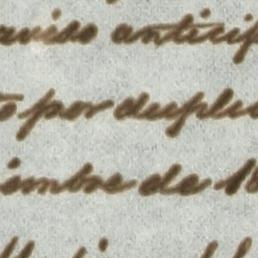 aviso anticip
o por duplic
iembre de 18